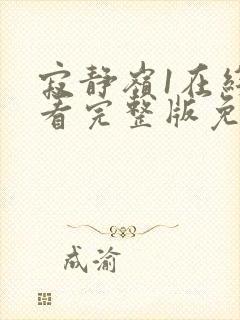 寂静嶺1在線
看完整版免
成渝